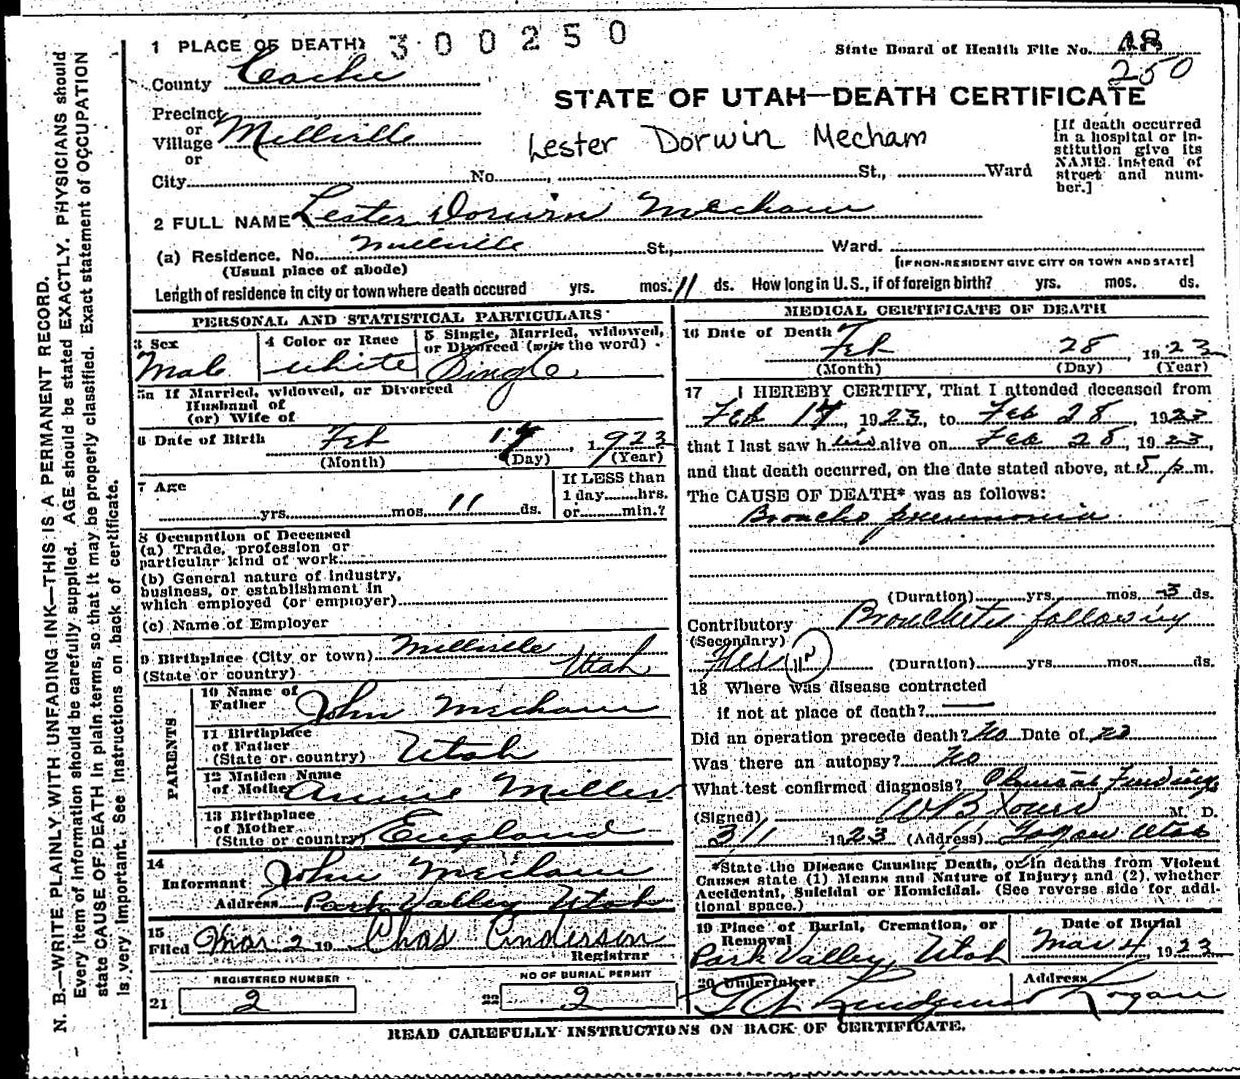 1 PLACE OF DEATH: 300250
State Board of Health File No. 48
250
County Cache
STATE OF UTAH—DEATH CERTIFICATE
Precinct
or
Village Millville
or
Lester Dorwin Mecham
[If death occurred in a hospital or institution give its NAME instead of street and number.]
City No. St., Ward
2 FULL NAME Lester Dorwin Mecham
(a) Residence. No. Millville St., Ward.
(Usual place of abode)
[IF NON-RESIDENT GIVE CITY OR TOWN AND STATE]
Length of residence in city or town where death occured yrs. mos. 11 ds. How long in U. S., if of foreign birth? yrs. mos. ds.
PERSONAL AND STATISTICAL PARTICULARS
3 Sex Male
4 Color or Race white
5 Single, Married, widowed, or Divorced (write the word) Single
5a If Married, widowed, or Divorced
Husband of
(or) Wife of
6 Date of Birth Feb 17, 1923
(Month) (Day) (Year)
7 Age
yrs. mos. 11 ds.
If LESS than
1 day hrs.
or min.?
8 Occupation of Deceased
(a) Trade, profession or
particular kind of work
(b) General nature of industry,
business, or establishment in
which employed (or employer)
(c) Name of Employer
9 Birthplace (City or town) Millville
(State or country) Utah
PARENTS
10 Name of Father John Mecham
11 Birthplace of Father (State or country) Utah
12 Maiden Name of Mother Annie Miller
13 Birthplace of Mother (State country) England
14
Informant John Mecham
Address Park Valley Utah
15
Filed Mar 2 19 Chas Anderson
Registrar
REGISTERED NUMBER
21 2
NO OF BURIAL PERMIT
22 2
MEDICAL CERTIFICATE OF DEATH
16 Date of Death Feb 28, 1923
(Month) (Day) (Year)
17 I HEREBY CERTIFY, That I attended deceased from
Feb 17, 1923, to Feb 28, 1923
that I last saw him alive on Feb 28, 1923,
and that death occurred, on the date stated above, at 5 p.m.
The CAUSE OF DEATH* was as follows:
Broncho pneumonia
(Duration) yrs. mos. 3 ds.
Contributory Bronchitis following
(Secondary)
Flu (Duration) yrs. mos. ds.
18 Where was disease contracted
if not at place of death?
Did an operation precede death? No Date of
Was there an autopsy? No
What test confirmed diagnosis? Clinical Findings
(Signed) M. D.
3/1 1923 (Address) Logan Utah
*State the Disease Causing Death, or in deaths from Violent
Causes state (1) Means and Nature of Injury; and (2), whether
Accidental, Suicidal or Homicidal. (See reverse side for addi-
tional space.)
19 Place of Burial, Cremation, or Removal
Park Valley, Utah
Date of Burial
Mar 4 1923
20 Undertaker
Address
Logan
READ CAREFULLY INSTRUCTIONS ON BACK OF CERTIFICATE.
N. B.—WRITE PLAINLY WITH UNFADING INK—THIS IS A PERMANENT RECORD.
Every item of information should be carefully supplied. AGE should be stated EXACTLY. PHYSICIANS should
state CAUSE OF DEATH in plain terms, so that it may be properly classified. Exact statement of OCCUPATION
is very important. See instructions on back of certificate.